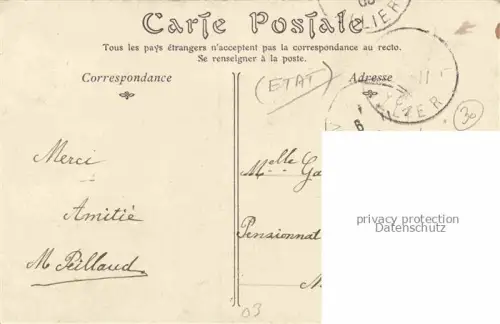 Carte Postale
Tous les pays étrangers n'acceptent pas la correspondance au recto.
Se renseigner à la poste.
Correspondance
Adresse
(ETAT)
30
Merci
Amitié
M Peillaud.
Melle Ga
Pensionnat
privacy protection
Datenschutz
03